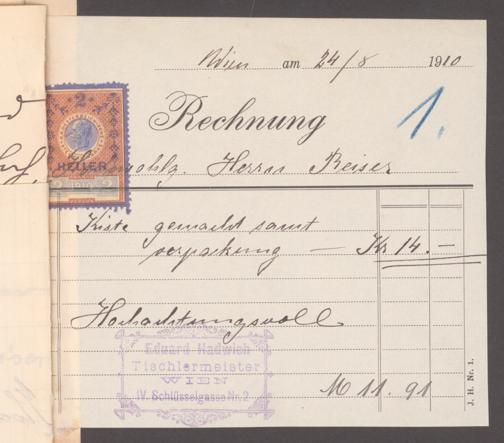 Wien am 24/8 1910
1.
Rechnung
2
HELLER
Herrn Reiser
Kiste gemacht samt
verpakung — Kr 14.—
Hochachtungsvoll
Eduard Hadwich
Tischlermeister
WIEN
IV. Schlüsselgasse Nr. 2
M 11.91
J. H. Nr. 1.